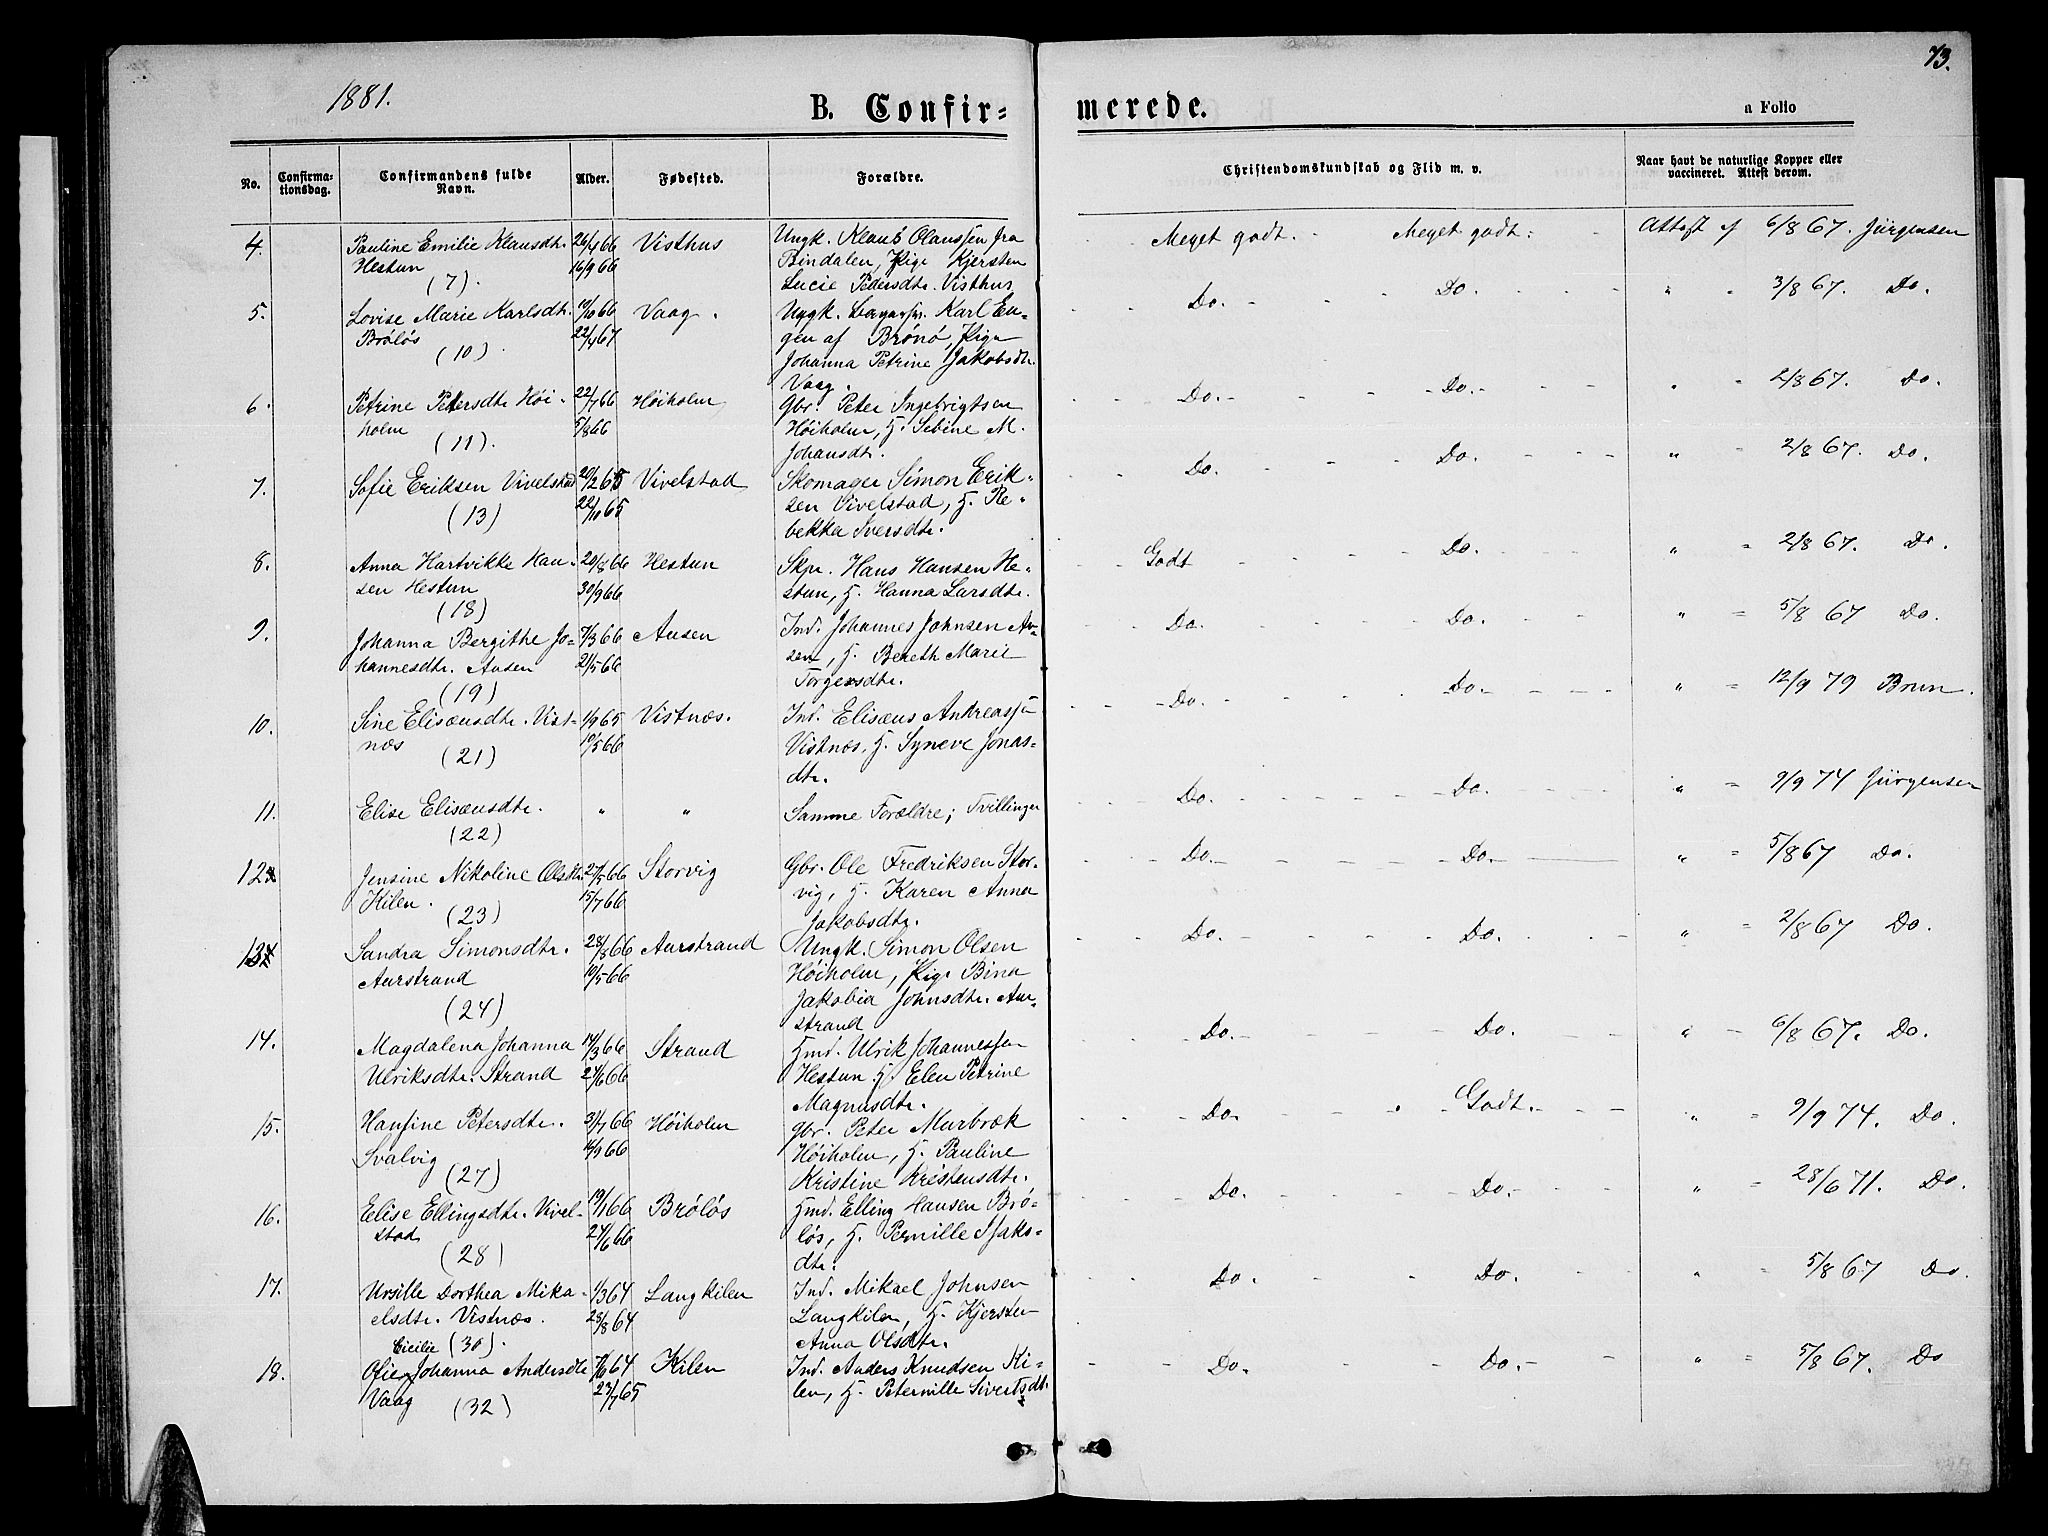 1881.
73.
B. Confir=
merede.
a Folio
No.
Confirma-
tionsdag.
Confirmandens fulde
Navn.
Alder.
Fødested.
Forældre.
Christendomskundskab og Flid m. v.
Naar havt de naturlige Kopper eller
vaccineret. Attest derom.
4. Pauline Emilie Klausdtr. 26/4 66 Visthus Ungk. Klaus Olaussen fra Meget godt. Meget godt. Attest af 6/8 67. Jürgensen
Hestun 16/9 66 Bindalen, Pige Kjersten
(7). Lucie Pedersdtr. Visthus
5. Lovise Marie Karlsdtr. 19/10 66 Vaag. Ungk. Karl Eu- Do. Do. " 3/8 67. Do.
Bröløs 22/4 67 gen af Brønø, Pige
(10) Johanna Petrine Jakobsdtr.
Vaag.
6. Petrine Petersdtr. Höi- 22/7 66 Höiholm Gbr. Peter Ingebrigtsen Do. Do. " 2/8 67. Do.
holm 5/8 66 Höiholm, H. Sebine M.
(11). Johansdtr.
7. Sofie Eriksen Vivelstad 20/2 65 Vivelstad Skomager Simon Erik- Do. Do. " 2/8 67. Do.
(13) 22/10 65 sen Vivelstad, H. Re-
bekka Sversdtr.
8. Anna Hartvikke Han- 20/8 66 Hestun Skpr. Hans Hansen He- Godt Do. " 2/8 67. Do.
sen Hestun 30/9 66 stun, H. Hanna Larsdtr.
(18)
9. Johanna Bergithe Jo- 7/3 66 Ausen Ind. Johannes Johnsen Au- Do. Do. " 5/8 67 Do.
hannesdtr. Ausen 21/5 66 sen, H. Bereth Marie
(19) Torgersdtr.
10. Sine Elisæusdtr. Vist- 1/9 65 Vistnæs. Ind. Elisæus Andreassen Do. Do. " 12/9 79 Brun.
næs 10/5 66 Vistnæs, H. Syneve Jonas-
(21) dtr.
11. Elise Elisæusdtr. " " Samme Forældre; Tvillinger Do. Do. " 9/9 74 Jürgensen
(22)
12. Jensine Nikoline Olsdtr. 27/5 66 Storvig Gbr. Ole Fredriksen Stor- Do. Do. " 5/8 67 Do.
Kilen. 15/7 66 vig, H. Karen Anna
(23) Jakobsdtr.
13. Sandra Simonsdtr. 28/8 66 Aurstrand Ungk. Simon Olsen Do. Do. " 2/8 67 Do.
Aurstrand 10/5 66 Höiholm, Pige Bina
(24) Jakobia Johnsdtr. Aur-
strand
14. Magdalena Johanna 14/3 66 Strand Hmd. Ulrik Johannessen Do. Do. " 6/8 67. Do.
Ulriksdtr. Strand 24/6 66 Hestun H. Elen Petrine
Magnusdtr.
15. Hansine Petersdtr. 31/7 66 Höiholm Gbr. Peter Murbræk Do. Godt. " 9/9 74. Do.
Svalvig 16/9 66 Höiholm, H. Pauline
(27) Kristine Kristensdtr.
16. Elise Ellingsdtr. Vivel- 19/1 66 Bröløs Hmd. Elling Hansen Brö- Do. Do. " 28/6 71. Do.
stad 24/6 66 løs, H. Pernille Isaks-
(28) dtr.
17. Ursille Dorthea Mika- 1/3 64 Langkilen Ind. Mikael Johnsen Do. Do. " 5/8 67 Do.
elsdtr. Vistnæs. 28/8 64 Langkilen, H. Kjersten
(30). Anna Olsdtr.
Cicilie
18. Ofie Johanna Andersdtr. 7/6 64 Kilen Ind. Anders Knudsen Ki- Do. Do. " 5/8 67. Do
Vaag 23/7 65 len, H. Peternille Sivertsdtr.
(32)